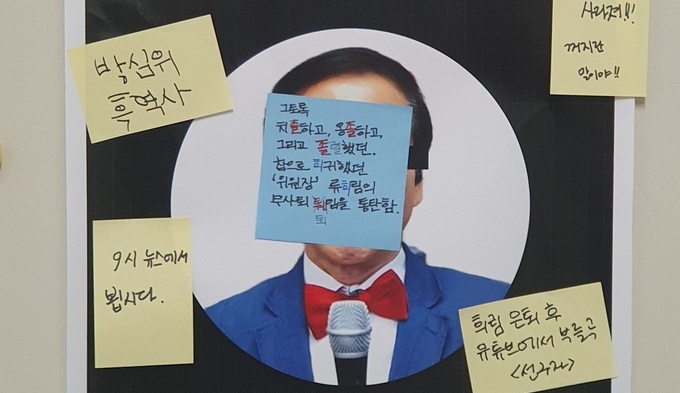 방심위
흑역사
사라져!!
꺼지란
말이야!!
그토록
치졸하고, 옹졸하고,
그리고 졸렬했던.
참으로 희귀했던
'위원장' 류희림의
무사퇴 퇴임을 통탄함.
퇴
9시 뉴스에서
봅시다.
희림 은퇴 후
유튜브에서 부를 곡
<선구자>